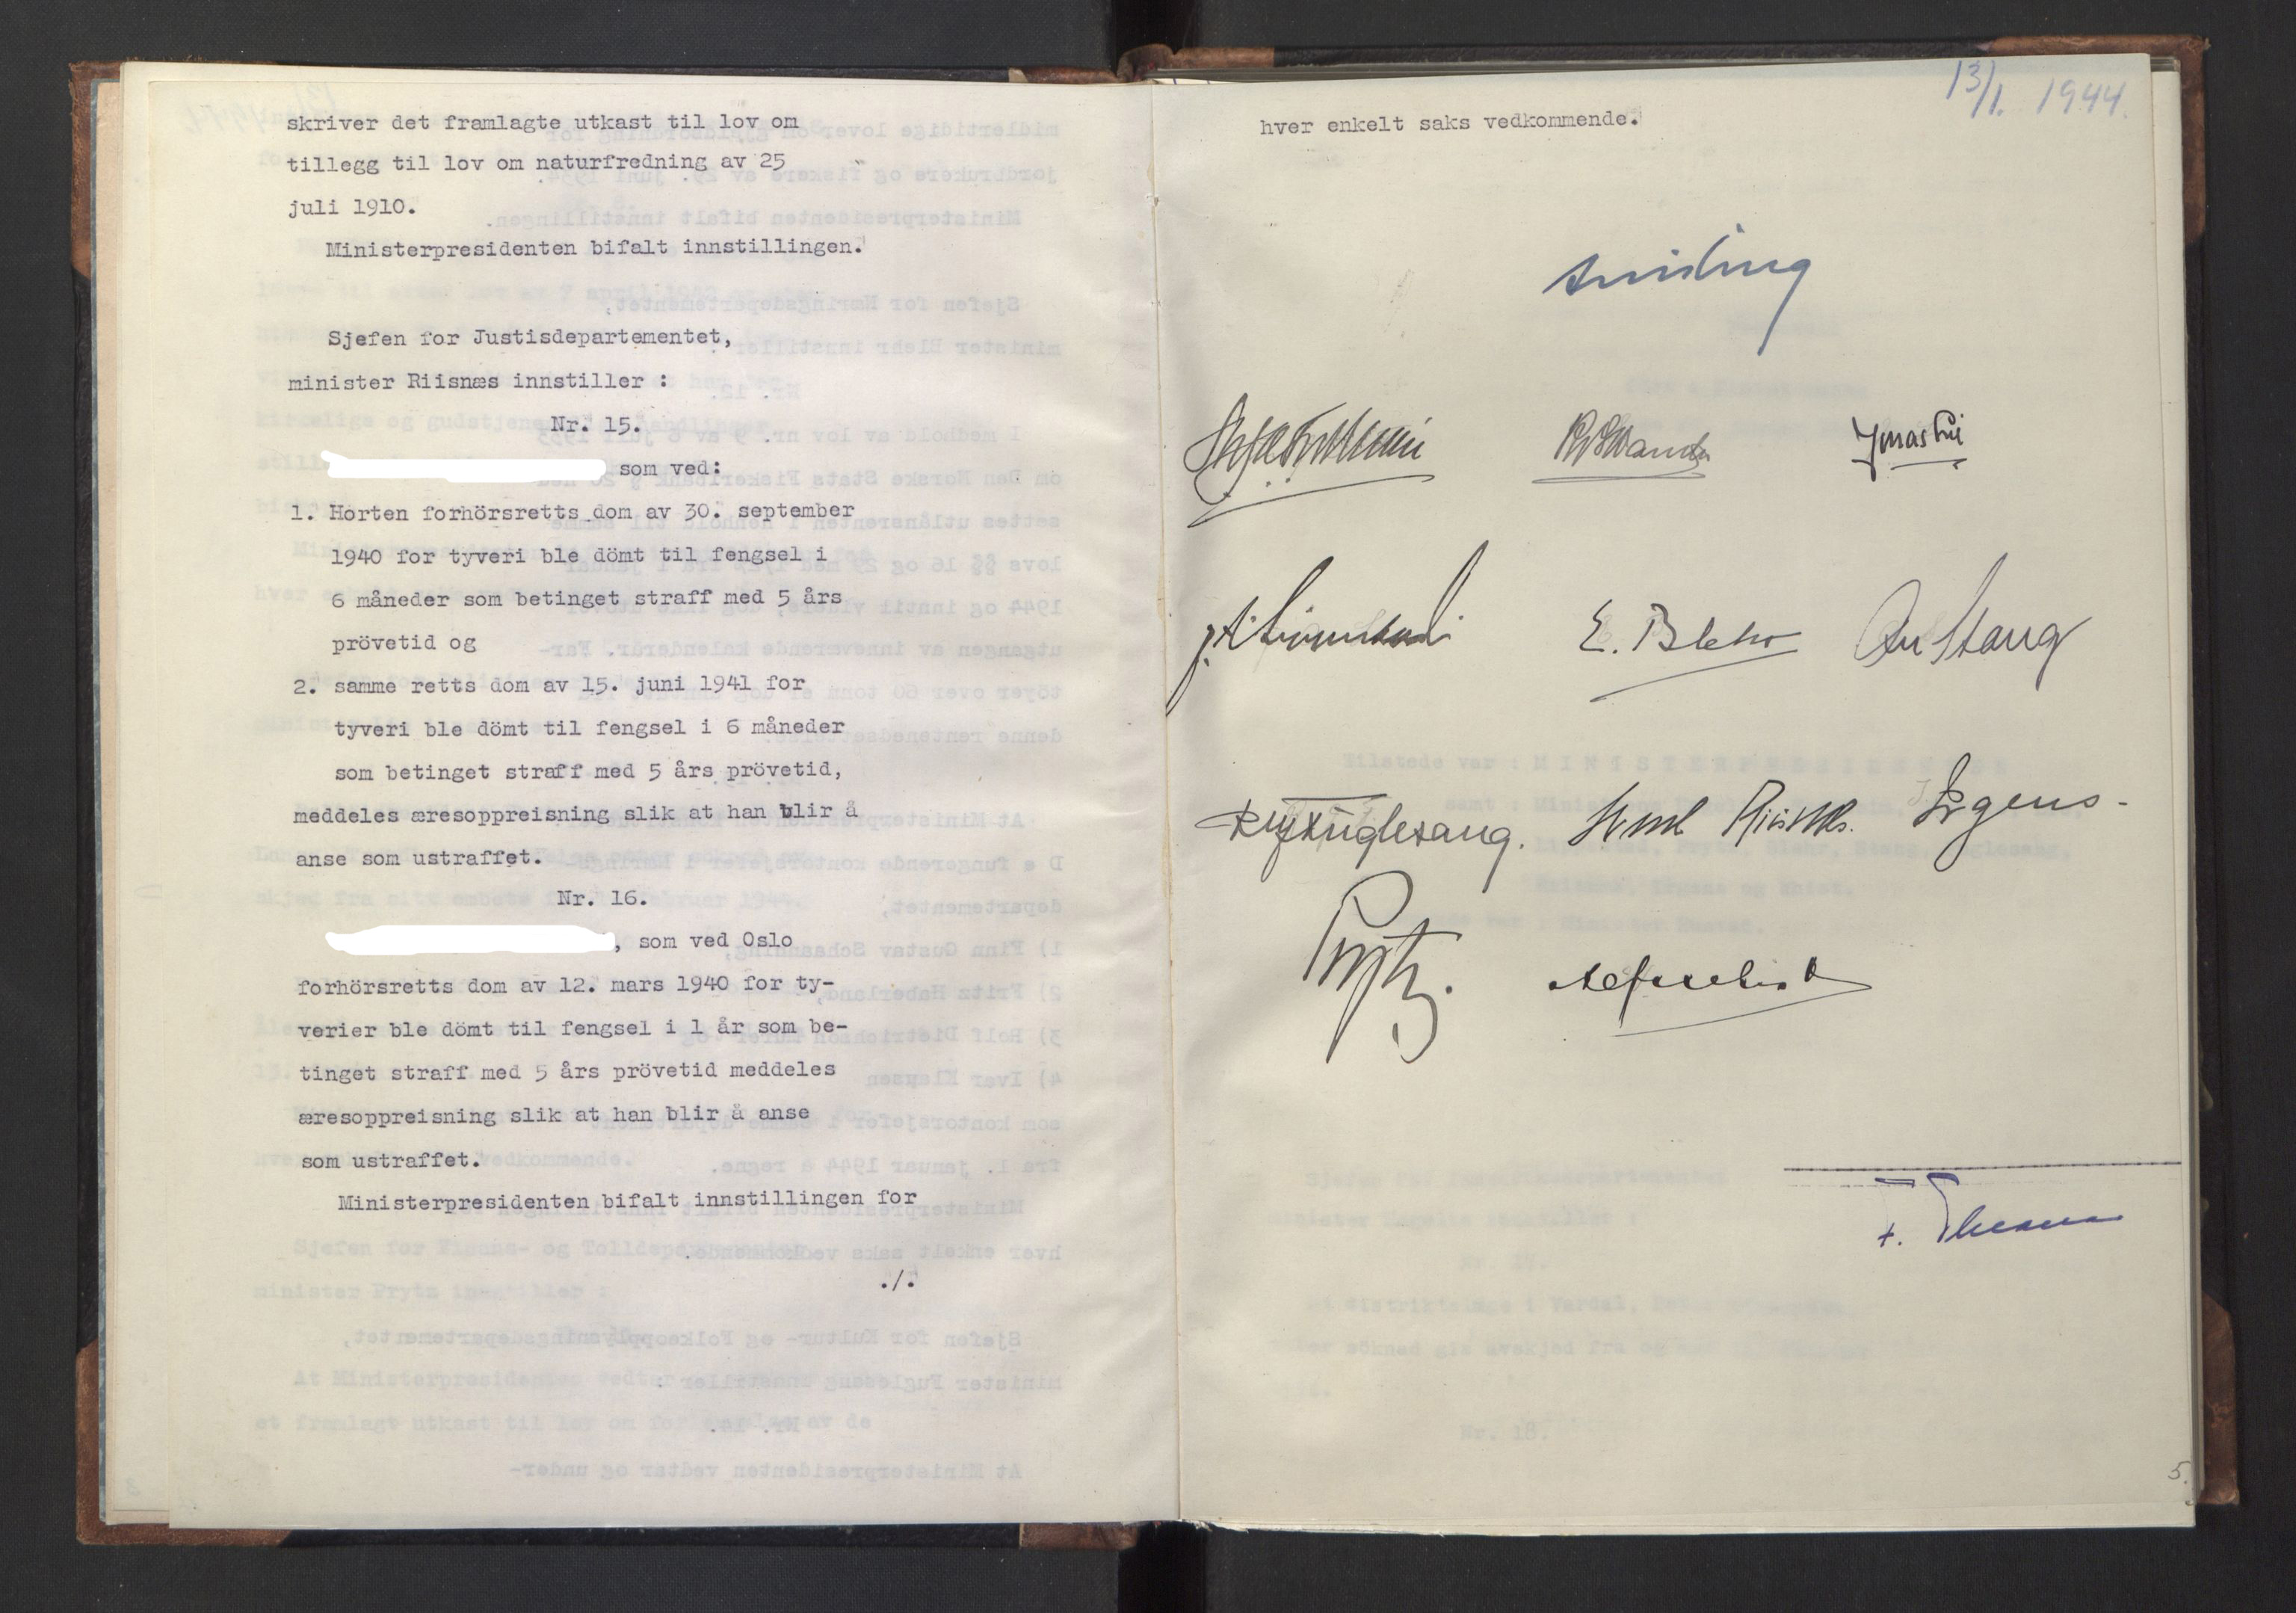 skriver det framlagte utkast til lov om
tillegg til lov om naturfredning av 25
juli 1910.
Ministerpresidenten bifalt innstillingen.
Sjefen for Justisdepartementet,
minister Riisnæs innstiller :
Nr. 15.
som ved:
1. Horten forhörsretts dom av 30. september
1940 for tyveri ble dömt til fengsel i
6 måneder som betinget straff med 5 års
prövetid og
2. samme retts dom av 15. juni 1941 for
tyveri ble dömt til fengsel i 6 måneder
som betinget straff med 5 års prövetid,
meddeles æresoppreisning slik at han blir å
anse som ustraffet.
Nr. 16.
, som ved Oslo
forhörsretts dom av 12. mars 1940 for ty-
verier ble dömt til fengsel i 1 år som be-
tinget straff med 5 års prövetid meddeles
æresoppreisning slik at han blir å anse
som ustraffet.
Ministerpresidenten bifalt innstillingen for
./.
13/1. 1944.
hver enkelt saks vedkommende.
Quisling
E. Blehr
Stang
Fuglesang.
Riisnæs.
Irgens
Prytz.
5.